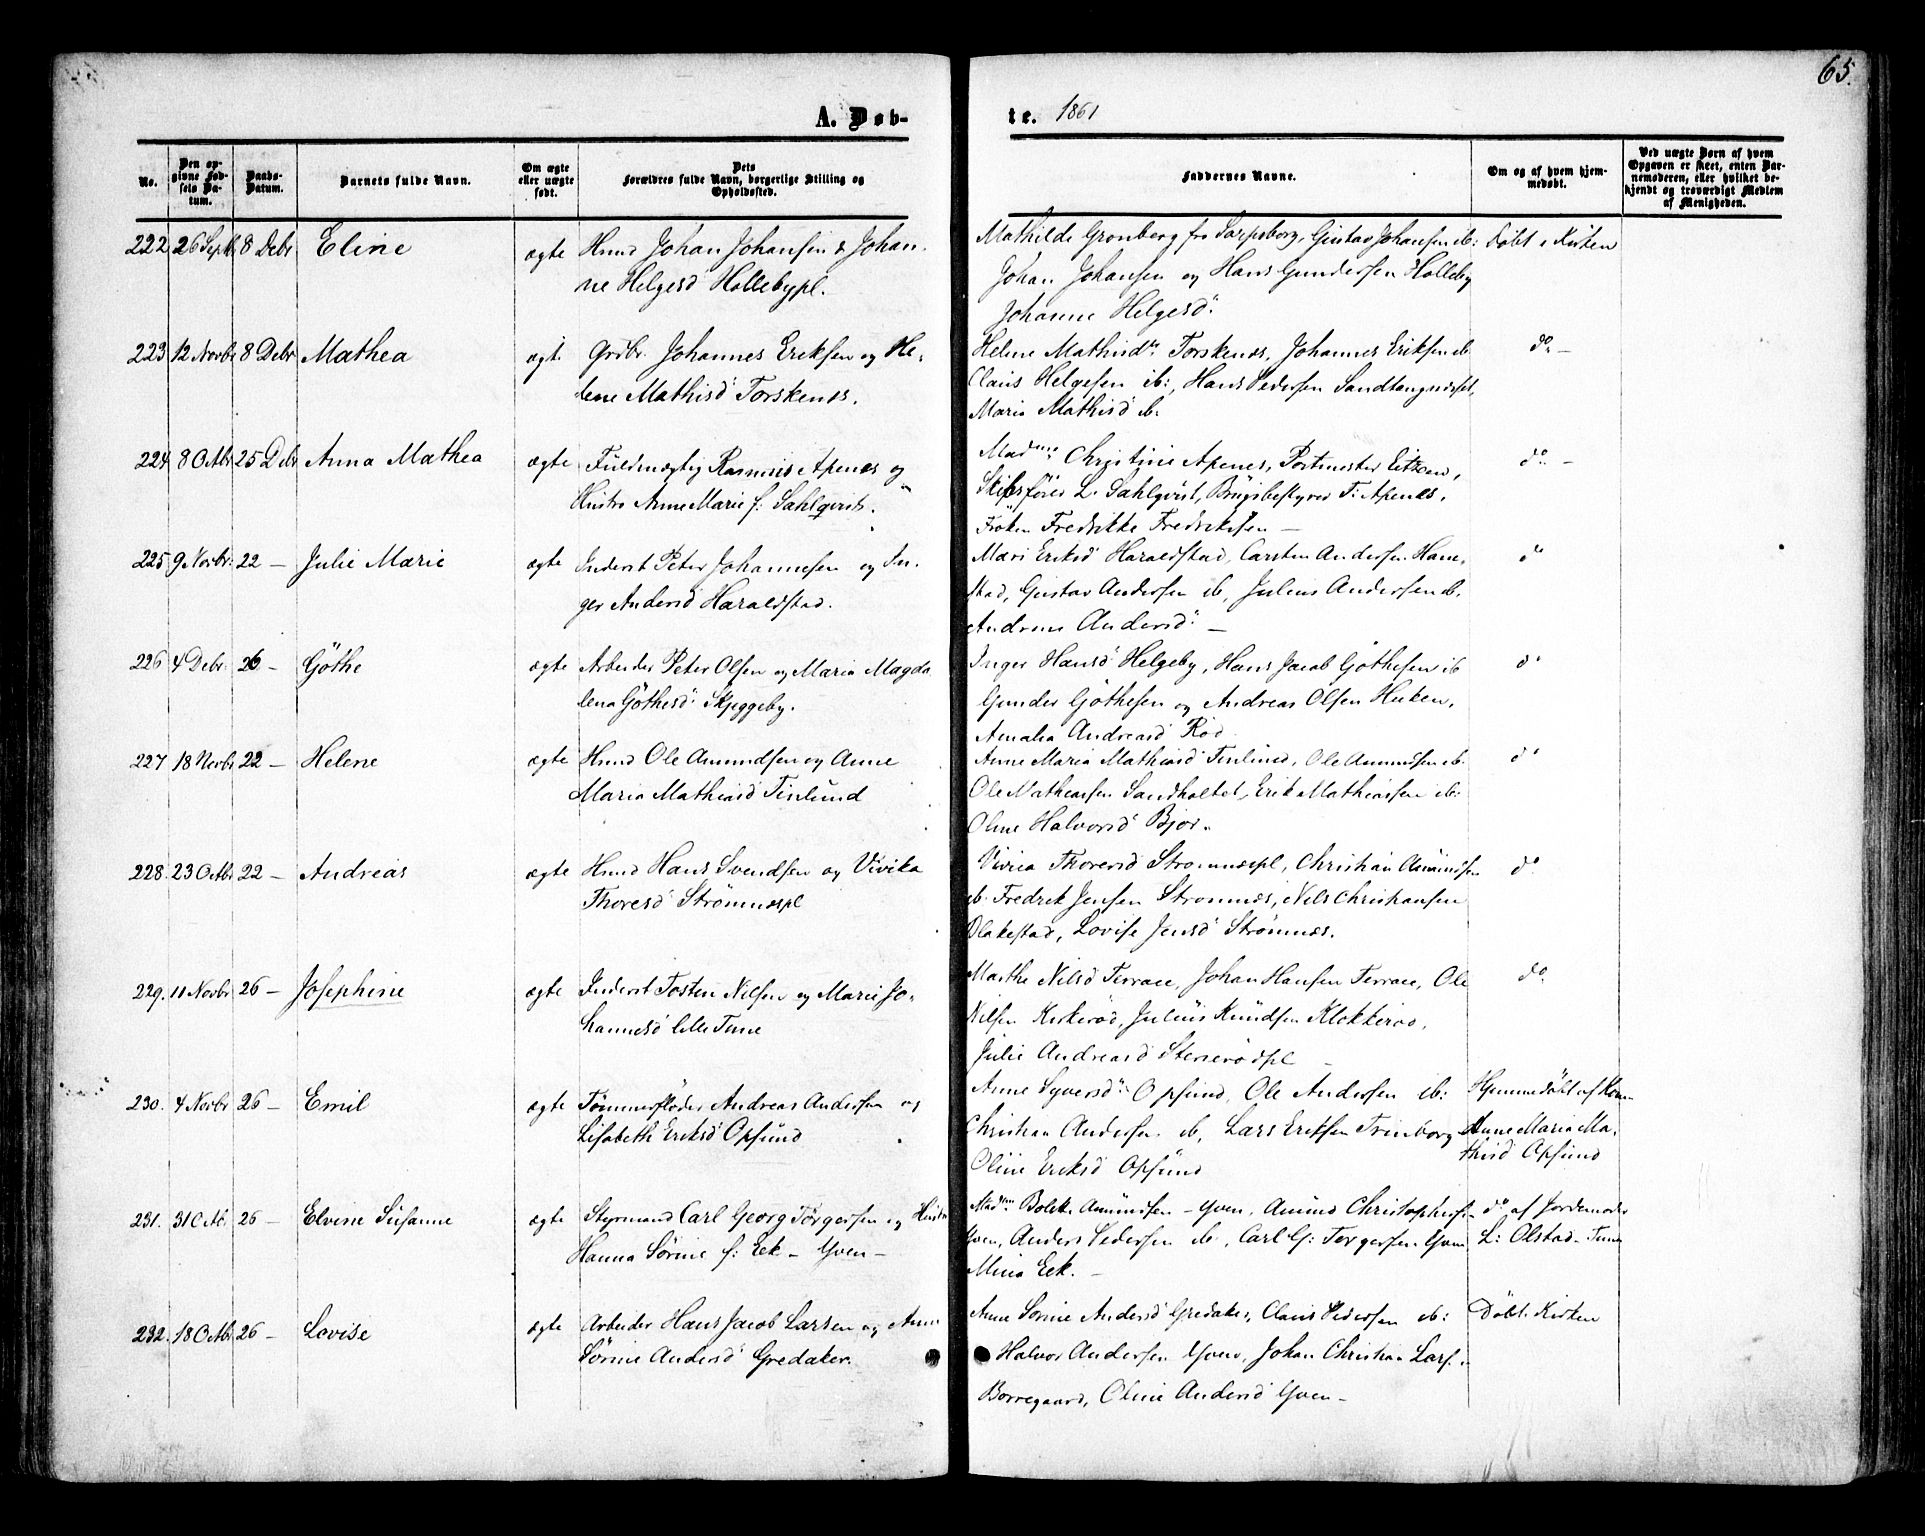 65.
A. Døb-
te. 1861
No.
Den op-
givne Fød-
sels Da-
tum.
Daabs-
Datum.
Barnets fulde Navn.
Om ægte
eller uægte
født.
Dets
Forældres fulde Navn, borgerlige Stilling og
Opholdssted.
Faddernes Navne.
Om og af hvem hjem-
medøbt.
Ved uægte Børn af hvem
Opgaven er skeet, enten Bar-
nemoderen, eller hvilket be-
kjendt og troværdigt Medlem
af Menigheden.
222 26 Septbr 8 Debr Eline ægte Hmd Johan Johansen & Johan-
ne Helgesd Hollebypl.
Mathilde Gronberg fra Sarpsborg, Gustav Johansen ib:
Johan Johansen og Hans Gundersen Holleby
Johanne Helgesd:
Døbt i Kirken
223 12 Novbr 8 Debr Mathea ægt Grdbr. Johannes Eriksen og He-
lene Mathisd Torskenes.
Helene Mathisdtr Torskenes, Johannes Eriksen ib
Claus Helgesen ib:, Hans Pedersen
Maria Mathisd ib:
do –
224 8 Octbr 25 Debr Anna Mathea ægte Fuldmægtig Rasmus Apenes og
Hustro Anne Marie f: Sahlqvist.
Madme Christine Apenes, Postmester Eitzen,
Skibsfører L. Sahlqvist, Brugsbestyrer T: Apenes,
Frøken Fredrikke Fredriksen –
do –
225 9 Novbr: 22 – Julie Marie ægte Inderst Peter Johannesen og In-
ger Andersd Haraldstad.
Mari Eriksd Haraldstad, Carsten Andersen Hane-
stad, Gustav Andersen ib, Julius Andersen ib.
Andrine Andersd: –
do
226 4 Debr: 26 – Göthe ægte Arbeider Peter Olsen og Maria Magda
lena Göthesd: Skjeggeby.
Inger Hansd Helgeby, Hans Jacob Göthesen ib
Gunder Göthesen og Andreas Olsen Huken,
Amalia Andreasd Rød.
do
227 18 Novbr 22 – Helene ægte Hmd Ole Amundsen og Anne
Maria Mathiasd Tinlund
Anne Maria Mathiasd Tinlund, Ole Amundsen ib.
Ole Mathiassen Sandholtet, Erik Mathiassen ib:
Oline Halvorsd Bjør.
do
228. 23 Octbr 22 – Andreas ægte Hmd Hans Svendsen og Vivika
Thoresd Strömnæspl
Vivica Thoresd Stromnæspl, Christian Amundsen
ib. Fredrik Jensen Stromnæs, Nils Christiansen
Olakestad, Lovise Jensd Strömnæs.
do
229. 11 Novbr 26 – Josephine ægte Inderst Tosten Nilsen og Marie Jo-
hannesd lille Tune
Marthe Nilsd Terrace, Johan Hansen Terrace, Ole
Nilsen Kirkerød, Julius Knudsen Klokkerød,
Julie Andreasd Stenerødspl –
do
230. 4 Novbr 26 – Emil ægte Tømmerfløder Andreas Andersen og
Lisabeth Eriksd Opsund
Anne Syversd: Opsund, Ole Andersen ib:
Christian Andersen ib, Lars Eriksen Trinborg
Oline Eriksd Opsund
Hjemmedöbt af Kone
Anne Maria Ma-
thisd Opsund
231. 31 Octbr 26 – Elvine Susanne ægte Styrmand Carl Georg Törgersen og Hustro
Hanna Sørine f: Eek – Yven –
Madme Bolek. Amundsen – Yven, Amund Christophers.
Yven, Anders Pedersen ib, Carl G: Torgersen Yven
Mina Eek. –
do af Jordemoder
L: Olstad – Tune
232. 18 Octbr 26 – Lovise ægte Arbeider Hans Jacob Larsen og Anne
Sørine Andersd Gredaker.
Anne Sørine Andersd Gredaker, Claus Pedersen ib:
Halvor Andersen Yven, Johan Christian Lars.
Borregaard, Oline Andersd Yven –
Döbt i Kirken